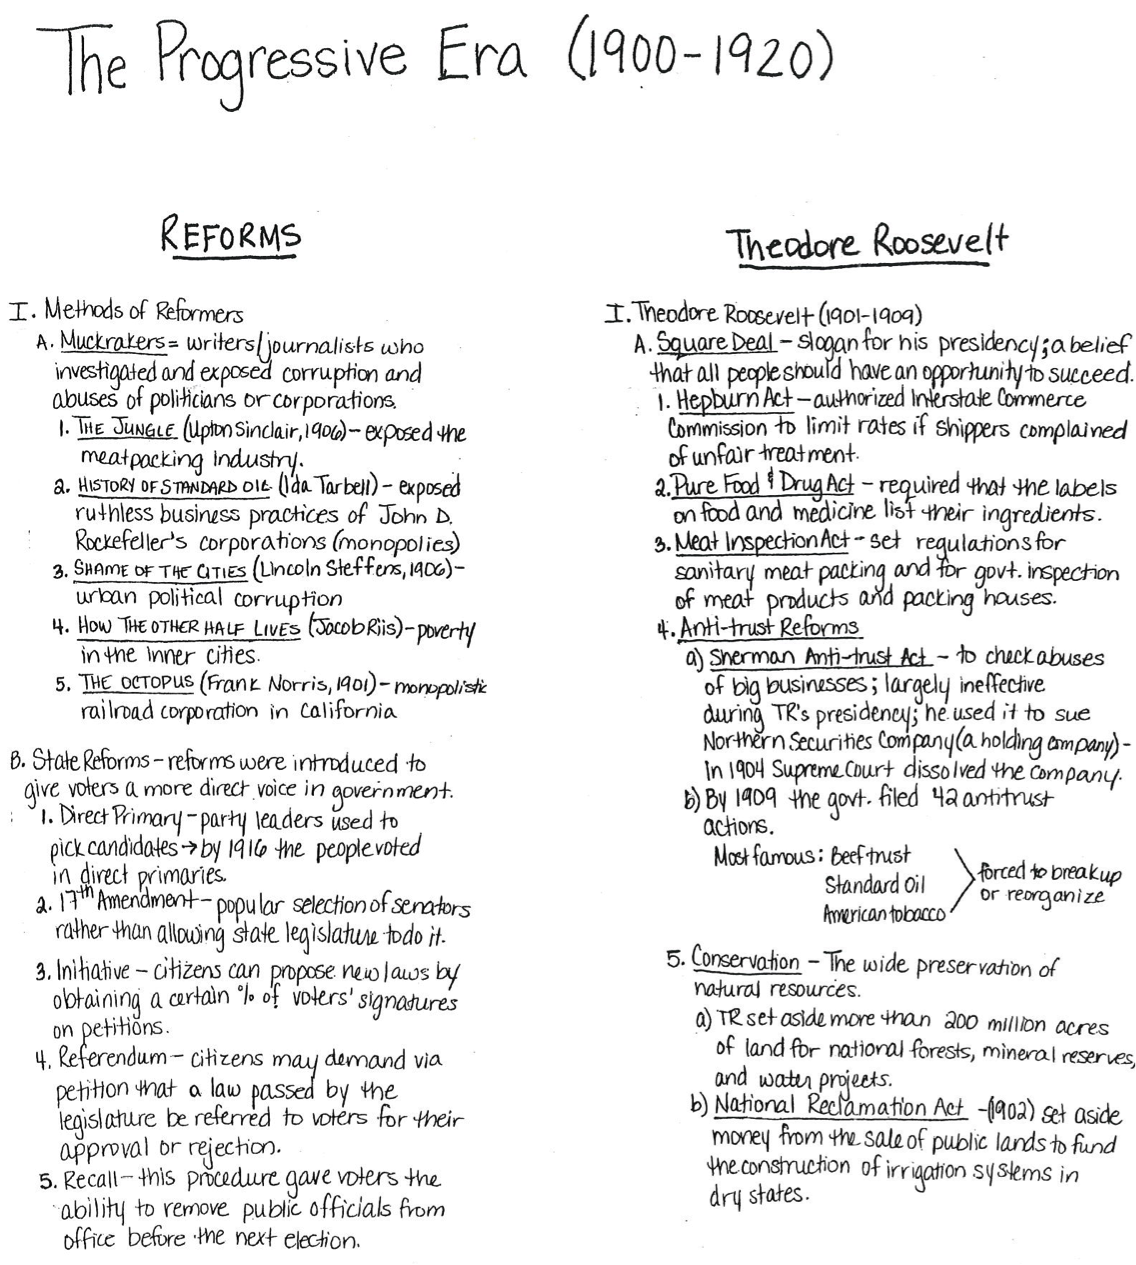 The Progressive Era (1900-1920)
REFORMS
I. Methods of Reformers
A. Muckrakers = writers/journalists who
investigated and exposed corruption and
abuses of politicians or corporations.
1. THE JUNGLE (Upton Sinclair, 1906) - exposed the
meatpacking industry.
2. HISTORY OF STANDARD OIL (Ida Tarbell) - exposed
ruthless business practices of John D.
Rockefeller's corporations (monopolies)
3. SHAME OF THE CITIES (Lincoln Steffens, 1906) -
urban political corruption
4. HOW THE OTHER HALF LIVES (Jacob Riis) - poverty
in the inner cities.
5. THE OCTOPUS (Frank Norris, 1901) - monopolistic
railroad corporation in California
B. State Reforms - reforms were introduced to
give voters a more direct voice in government.
1. Direct Primary - party leaders used to
pick candidates → by 1916 the people voted
in direct primaries.
2. 17th Amendment - popular selection of senators
rather than allowing state legislature to do it.
3. Initiative - citizens can propose new laws by
obtaining a certain % of voters' signatures
on petitions.
4. Referendum - citizens may demand via
petition that a law passed by the
legislature be referred to voters for their
approval or rejection.
5. Recall - this procedure gave voters the
ability to remove public officials from
office before the next election.
Theodore Roosevelt
I. Theodore Roosevelt (1901-1909)
A. Square Deal - slogan for his presidency; a belief
that all people should have an opportunity to succeed.
1. Hepburn Act - authorized Interstate Commerce
Commission to limit rates if shippers complained
of unfair treatment.
2. Pure Food & Drug Act - required that the labels
on food and medicine list their ingredients.
3. Meat Inspection Act - set regulations for
sanitary meat packing and for govt. inspection
of meat products and packing houses.
4. Anti-trust Reforms
a) Sherman Anti-trust Act - to check abuses
of big businesses; largely ineffective
during TR's presidency; he used it to sue
Northern Securities Company (a holding company) -
in 1904 Supreme Court dissolved the company.
b) By 1909 the govt. filed 42 antitrust
actions.
Most famous: Beef trust
Standard Oil
American tobacco
forced to breakup
or reorganize
5. Conservation - The wide preservation of
natural resources.
a) TR set aside more than 200 million acres
of land for national forests, mineral reserves,
and water projects.
b) National Reclamation Act - (1902) set aside
money from the sale of public lands to fund
the construction of irrigation systems in
dry states.